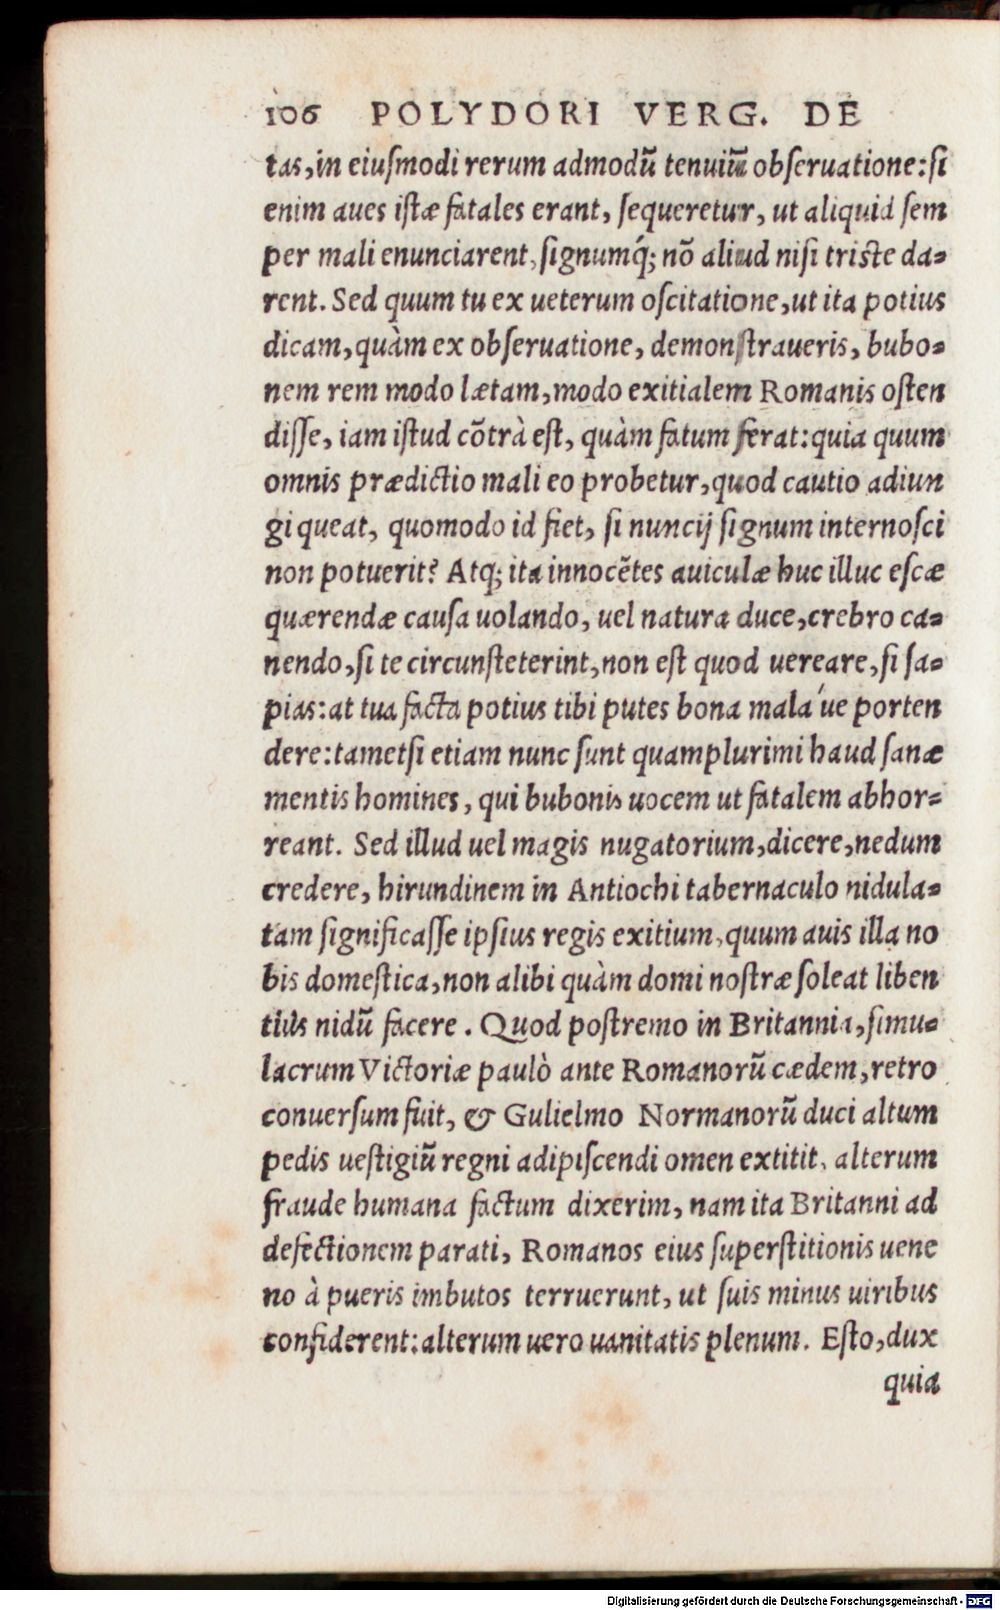 106 POLYDORI VERG. DE
tas, in eiuſmodi rerum admodũ tenuiũ obſeruatione: ſi
enim aues iſtæ fatales erant, ſequeretur, ut aliquid ſem
per mali enunciarent, ſignumq́; nõ aliud niſi triste da-
rent. Sed quum tu ex ueterum oſcitatione, ut ita potius
dicam, quàm ex obſeruatione, demonſtraueris, bubo-
nem rem modo lætam, modo exitialem Romanis oſten
diſſe, iam iſtud cõtrà eſt, quàm fatum ferat: quia quum
omnis prædictio mali eo probetur, quod cautio adiun
gi queat, quomodo id fiet, ſi nuncij ſignum internoſci
non potuerit? Atq; ita innocẽtes auiculæ huc illuc eſcæ
quærendæ cauſa uolando, uel natura duce, crebro ca-
nendo, ſi te circunſteterint, non eſt quod uereare, ſi ſa-
pias: at tua facta potius tibi putes bona mala ́ue porten
dere: tametſi etiam nunc ſunt quamplurimi haud ſanæ
mentis homines, qui bubonis uocem ut fatalem abhor-
reant. Sed illud uel magis nugatorium, dicere, nedum
credere, hirundinem in Antiochi tabernaculo nidula-
tam ſignificaſſe ipſius regis exitium, quum auis illa no
bis domeſtica, non alibi quàm domi noſtræ ſoleat liben
tiùs nidũ facere. Quod poſtremo in Britannia, ſimu-
lacrum Victoriæ paulò ante Romanorũ cædem, retro
conuerſum fuit, & Gulielmo Normanorũ duci altum
pedis ueſtigiũ regni adipiſcendi omen extitit, alterum
fraude humana factum dixerim, nam ita Britanni ad
defectionem parati, Romanos eius ſuperſtitionis uene
no à pueris imbutos terruerunt, ut ſuis minus uiribus
confiderent: alterum uero uanitatis plenum. Eſto, dux
quia
Digitalisierung gefördert durch die Deutsche Forschungsgemeinschaft - DFG